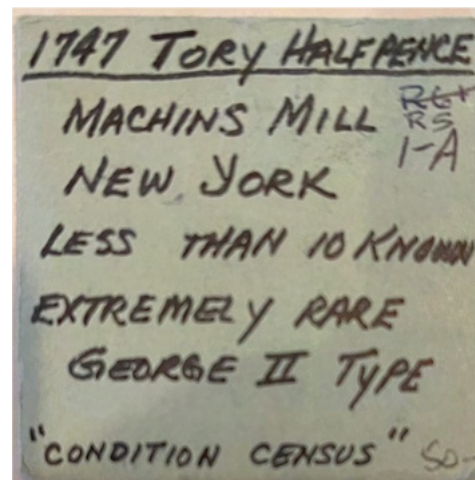 1747 TORY HALFPENCE
MACHINS MILL
R6+
R5
1-A
NEW YORK
LESS THAN 10 KNOWN
EXTREMELY RARE
GEORGE II TYPE
"CONDITION CENSUS"